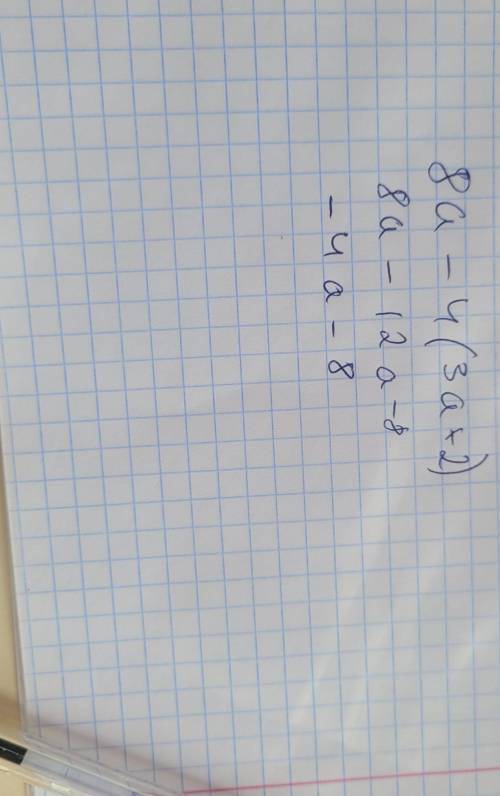 8a - 4(3a+2)
8a - 12a-8
-4a-8